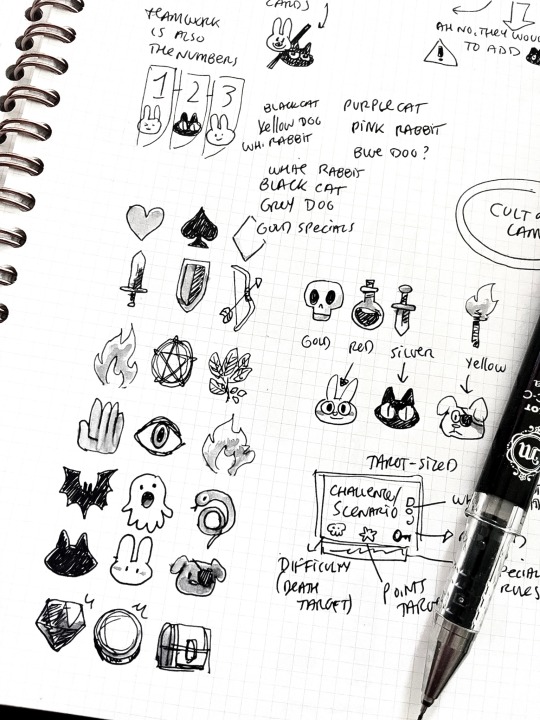 CARDS
TEAMWORK
IS ALSO
THE NUMBERS
1 2 3
AH NO, THEY WOU
TO ADD
BLACK CAT
YELLOW DOG
WHI. RABBIT
PURPLE CAT
PINK RABBIT
BLUE DOG?
WHITE RABBIT
BLACK CAT
GREY DOG
GOLD SPECIALS
CULT O
LAM
GOLD RED SILVER
YELLOW
TAROT-SIZED
CHALLENGE/
SCENARIO
DIFFICULTY
(DEATH
TARGET)
POINTS
TARG
SPECIAL
RULES